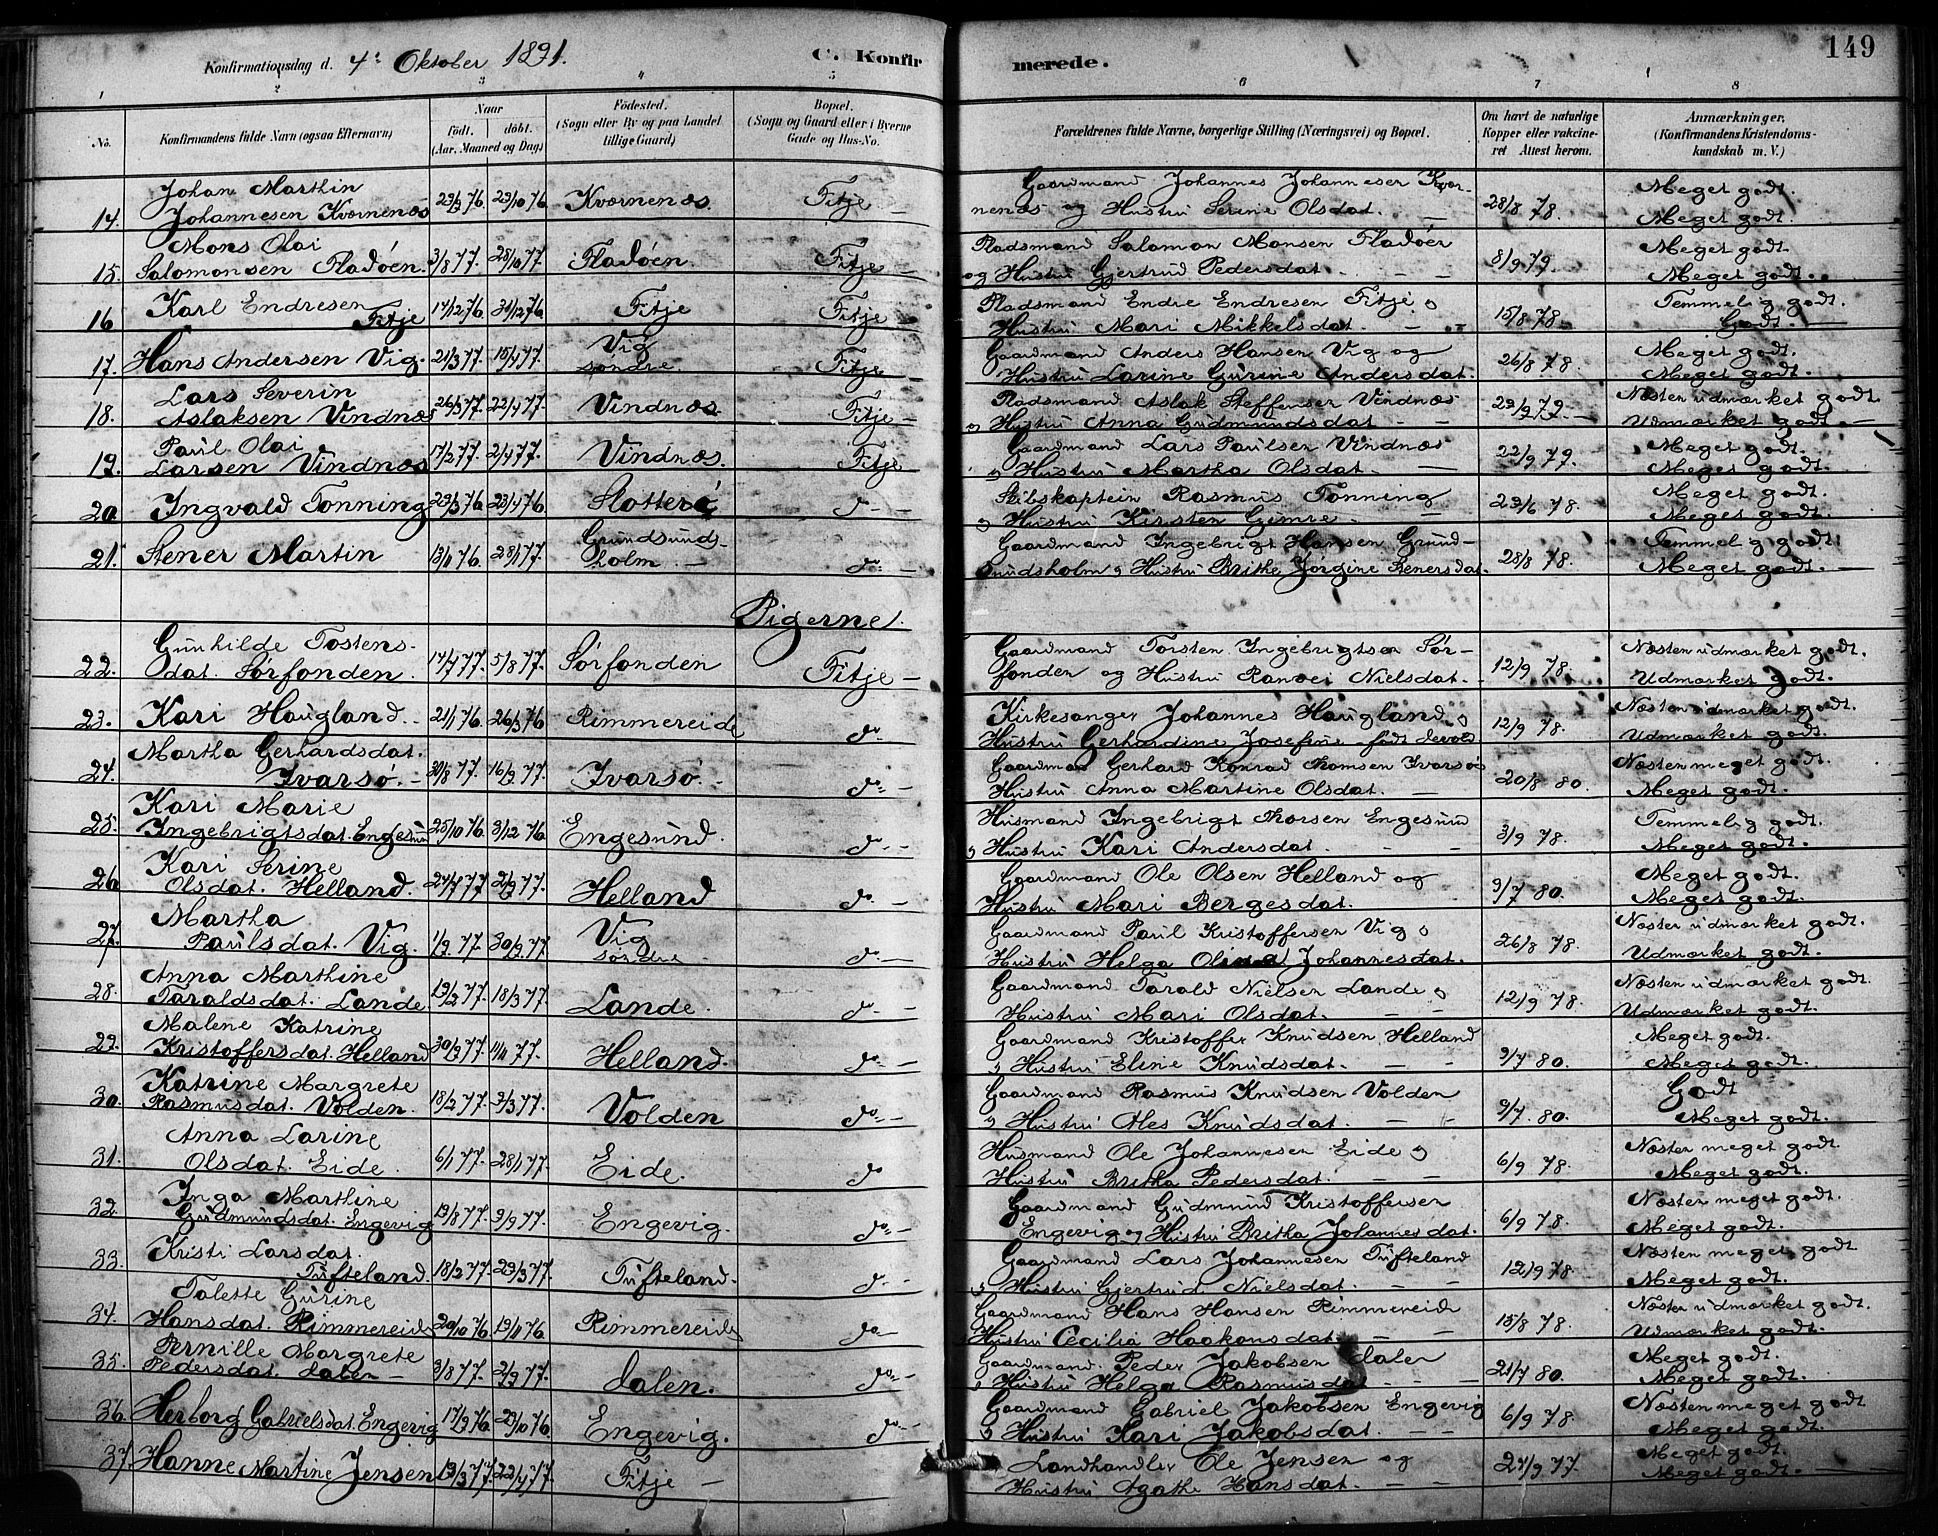 149
Konfirmationsdag d. 4de Oktober 1891. C. Konfirmerede.
1 2 3 4 5 6 7 8
No. Konfirmandens fulde Navn (ogsaa Efternavn) Naar födt. döbt. (Aar, Maaned og Dag) Födested. (Sogn eller By og paa Landet tillige Gaard) Bopæl. (Sogn og Gaard eller i Byerne Gade og Hus-No. Forældrenes fulde Navne, borgerlige Stilling (Næringsvei) og Bopæl. Om havt de naturlige Kopper eller vakcineret Attest herom. Anmærkninger. (Konfirmandens Kristendomskundskab m. V.)
Johan Marthin Gaardmand Johannes Johannesen Kvær- Meget godt.
14. Johannesen Kværnenæs 29/10 76 Kværnenæs. Fitje — nenæs og Hustru Serine Olsdat. — 28/8 78. Meget godt.
Mons Olai Pladsmand Salomon Monsen Fladöen Meget godt.
15. Salomonsen Fladöen. 3/8 77. 28/10 77. Fladöen. Fitje — og Hustru Gjertrud Pedersdat. — 8/9 79. Meget godt.
Karl Endresen Pladsmand Endre Endresen Fitje o Temmelig godt.
16 Fitje 17/12 76. 31/12 76. Fitje Fitje Hustru Mari Mikkelsdat. — 15/8 78 Godt. —
Vig Gaardmand Anders Hansen Vig og Meget godt.
17. Hans Andersen Vig. 21/3 77. 15/4 77. söndre. Fitje Hustru Larine Gurine Andersdat. 26/8 78. Meget godt.
Lars Severin Pladsmand Aslak Steffensen Vindnæs Næsten udmærket godt.
18. Aslaksen Vindnæs 26/3 77. 22/4 77. Vindnæs Fitje — o Hustru Anna Gudmundsdat — 29/9 79. — Udmærket godt. —
Paul Olai Gaardmand Lars Paulsen Vindnæs Meget godt.
19. Larsen Vindnæs 17/2 77. 2/4 77. Vindnæs. Fitje o Hustru Martha Olsdat. — 22/9 79. Meget godt.
Skibskaptein Rasmus Tonning Meget godt.
20 Ingvald Tonning 23/3 76. 23/4 76. Slotterö do — o Hustru Kirsten Gimre. — 23/6 78. Meget godt.
Grundsunds- Gaardmand Ingebrigt Hansen Grund- Temmelig godt.
21. Stener Martin 28/1 77. holm — do — sundsholm o Hustru Brithe Jørgine Renersdat. 28/8 78. Meget godt. —
Pigerne.
Gunhilde Tostens- Gaardmand Torsten Ingebrigtsen Sör- Næsten udmærket godt.
22. dat. Sørfonden. 14/7 77. 5/8 77. Sørfonden Fitje — fonden og Hustru Ranvei Nielsdat. 12/9 78. Udmærket godt.
Kirkesanger Johannes Haugland o Næsten udmærket godt.
23. Kari Haugland. 21/1 76. 26/3 76 Rimmereide do Hustru Gerhardine Josefine født Devold 12/9 78. Udmærket godt.
Martha Gerhardsdat. Gaardman Gerhard Konrad Thomsen Ivarsö o Næsten meget godt.
24. Ivarsö. — 30/8 77. 16/9 77. Ivarsö. — do — Hustru Anna Martine Olsdat. — 20/8 80. Meget godt.
Kari Marie Husmand Ingebrigt Thorsen Engesund Temmelig godt.
25. Ingebrigtsdat. Engesund 25/10 76. 3/12 76. Engesund. do — o Hustru Kari Andersdat. — 3/9 78. Meget godt.
Kari Serine Gaardmand Ole Olsen Helland og Meget godt.
26 Olsdat. Helland. 24/7 77. 2/9 77. Helland do — Hustru Mari Bergesdat. 9/7 80. Meget godt.
Martha Vig Gaardmand Paul Kristoffersen Vig o Næsten udmærket godt.
27. Paulsdat. Vig. 1/9 77. 30/9 77. söndre do — Hustru Helga Johannesdat. 26/8 78. Udmærket godt.
Anna Marthine Gaardmand Tarald Nielsen Lande o Næsten udmærket godt.
28. Taraldsdat. Lande 19/2 77. 18/3 77. Lande. do — Hustru Mari Olsdat. — 12/9 78. Udmærket godt.
Malene Katrine Gaardmand Kristoffer Knudsen Helland Meget godt.
29. Kristoffersdat. Helland 30/9 77. 11/11 77. Helland. do — o Hustru Eline Knudsdat. — 9/7 80. Meget godt.
Katrine Margrete Gaardmand Rasmus Knudsen Volden Godt
30. Rasmusdat. Volden. 18/2 77. 9/3 77. Volden do — o Hustru Ales Knudsdat. — 9/7 80. Meget godt.
Anna Larine Husmand Ole Johannesen Eide o Næsten meget godt.
31. Olsdat. Eide. 6/1 77. 28/1 77. Eide. do Hustru Britha Pedersdat. — 6/9 78. Meget godt.
Inga Marthine Gaardmand Gudmund Kristoffersen Næsten meget godt.
32. Gudmundsdat. Engevig 19/8 77. 9/9 77. Engevig. do — Engevig og Hustru Britha Johannesdat. 6/9 78. Meget godt.
Kristi Larsdat. Gaardmand Lars Johannesen Tufteland Næsten meget godt
33. Tufteland. 18/2 77. 29/3 77. Tufteland. do — o Hustru Gjertrud Nielsdat. — 12/9 78 Meget godt.
Talette Gurine Gaardmand Hans Hansen Rimmereide Næsten udmærket godt.
34. Hansdat. Rimmereide 20/10 76. 19/11 76. Rimmereide do — o Hustru Cecilia Haakonsdat — 15/8 78. Udmærket godt.
Pernille Margrete Gaardmand. Peder Jakobsen Dalen Meget godt.
35. Pedersdat. Dalen — 3/8 77. 2/9 77. Dalen. do — o Hustru Helga Rasmusdat — 21/7 80. Meget godt.
Gaardmand Gabriel Jakobsen Engevig Næsten meget godt
36. Herborg Gabrielsdat. Engevig 17/9 76. 29/10 76. Engevig. do — o Hustru Kari Jakobsdat. — 6/9 78. Meget godt.
Landhandler Ole Jensen og Meget godt.
37. Hanne Martine Jensen 19/3 77. 22/4 77. Fitje — Hustru Agathe Hansdat. — 24/9 77. Meget godt. —